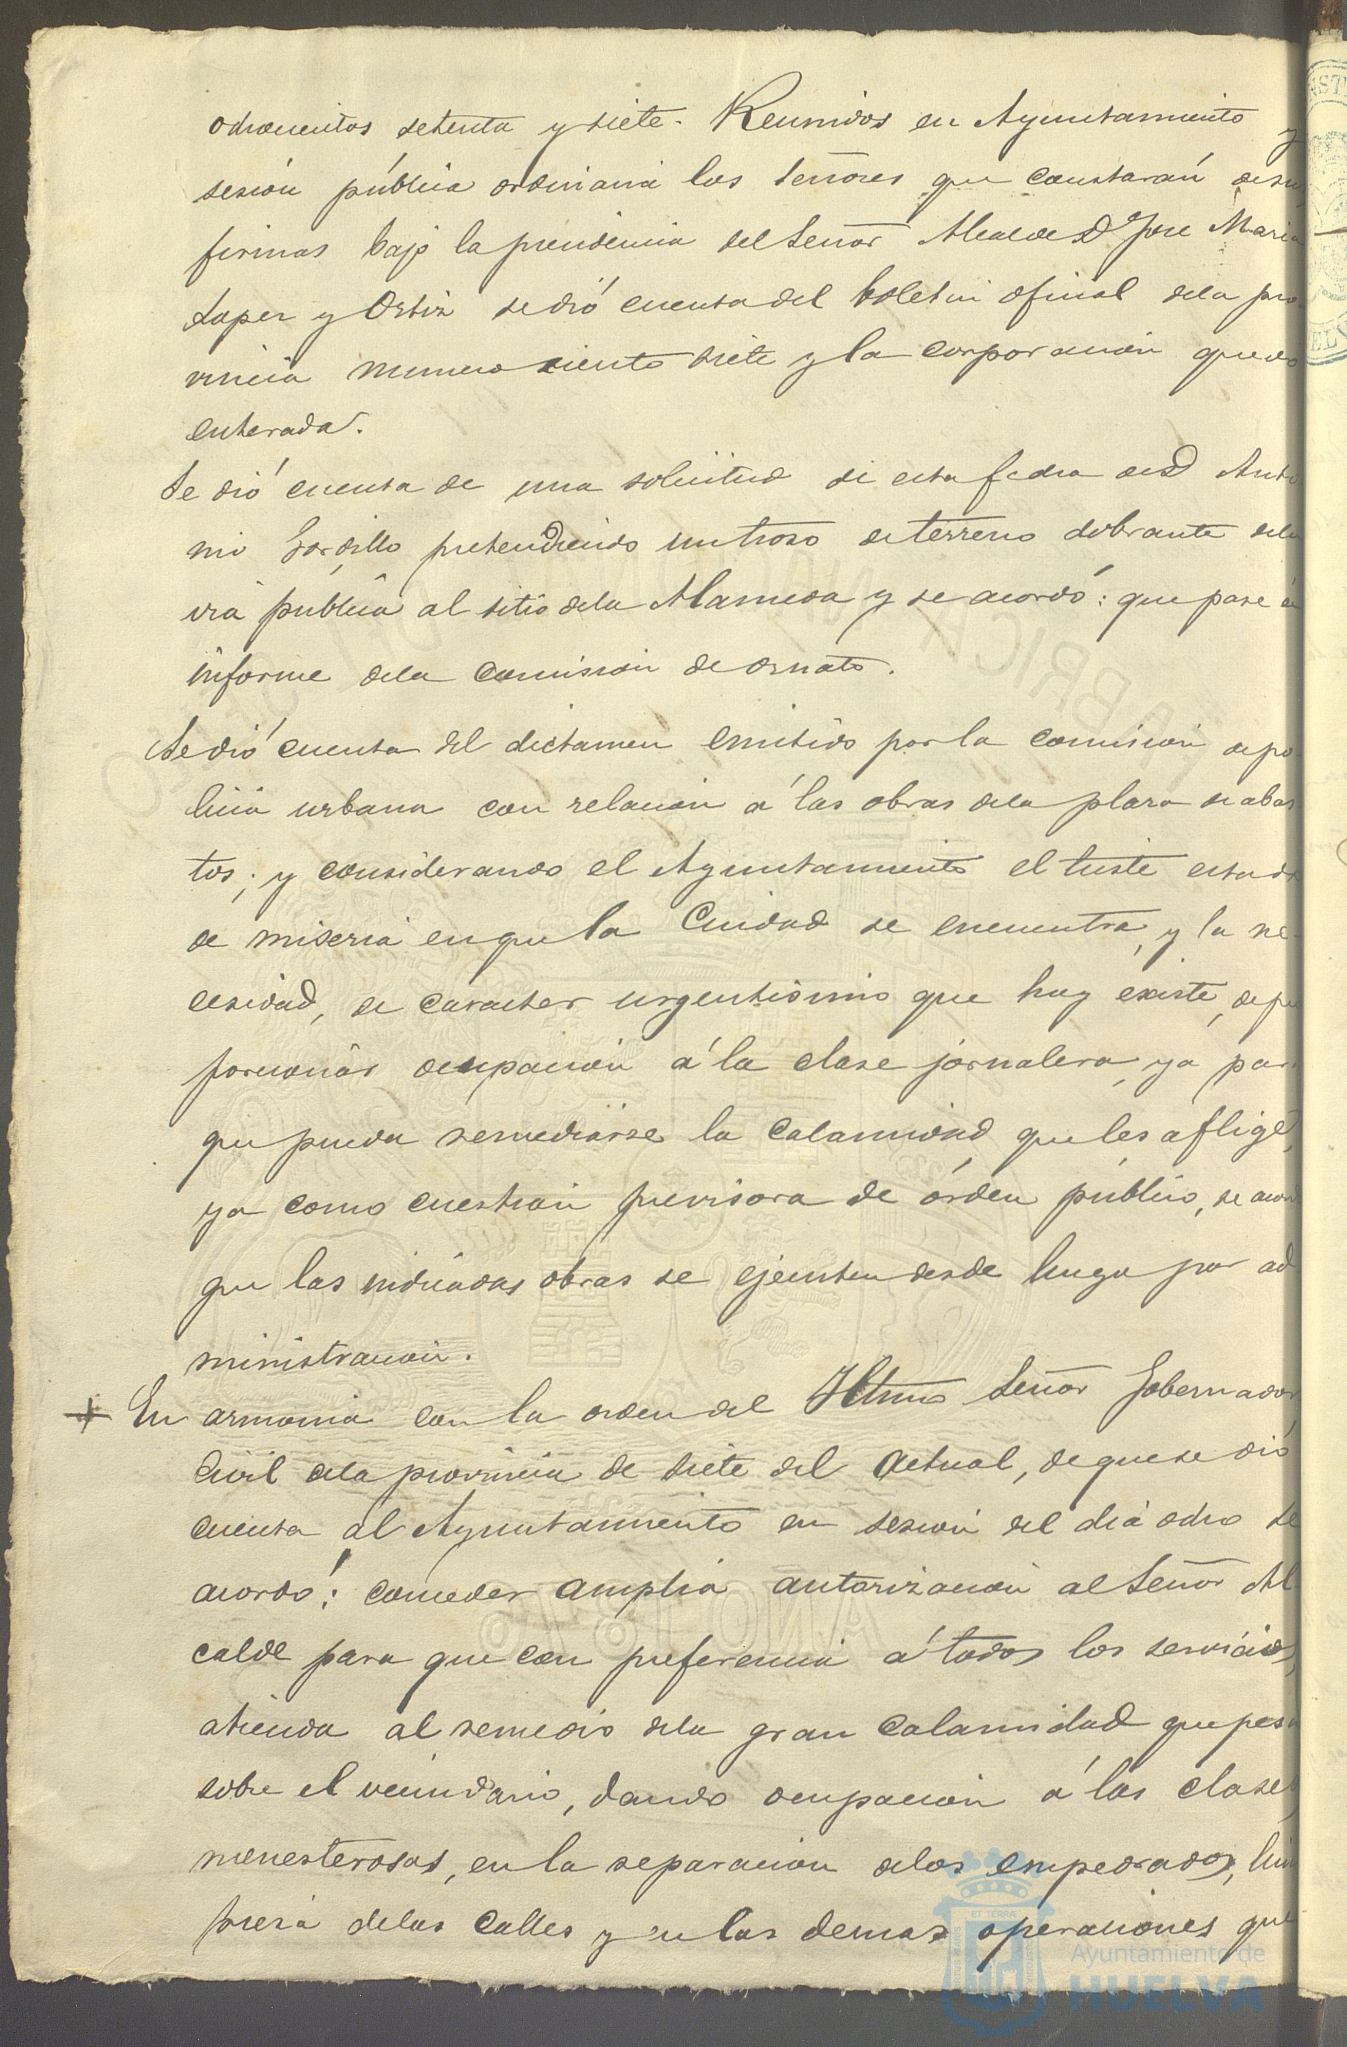 ochocientos setenta y siete. Reunidos en Ayuntamiento y
sesión pública ordinaria los Señores que constarán de sus
firmas bajo la presidencia del Señor Alcalde D. Jose Maria
Lopez y Ortiz se dió cuenta del boletin oficial dela pro
vincia numero ciento siete y la corporación quedo
enterada.
Se dió cuenta de una solicitud de esta fecha de D Anto
nio Gordillo pretendiendo un trozo de terreno sobrante dela
via pública al sitio dela Alameda y se acordó: que pase á
informe dela Comision de ornato.
Se dió cuenta del dictamen emitido por la comision de po
licia urbana con relacion á las obras dela plaza de abas
tos; y considerando el Ayuntamiento el triste estado
de miseria en que la Ciudad se encuentra, y la ne-
cesidad, de caracter urgentisimo que hoy existe, de pro
porcionar ocupación á la clase jornalera, ya por
que pueda remediarse la calamidad que les aflige,
ya como cuestion previsora de órden público, se acordó
que las indicadas obras se ejecuten desde luego por ad
ministracion.
+ En armonia con la orden del Iltmo Señor Gobernador
Civil dela provincia de siete del actual, de que se dió
cuenta al Ayuntamiento en sesión del dia ocho se
acordó: conceder amplia autorizacion al Señor Al
calde para que con preferencia á todos los servicios,
atienda al remedio dela gran calamidad que pesa
sobre el vecindario, dando ocupacion á las clases
menesterosas, en la reparacion delos empedrados, lim
pieza delas calles y en las demas operaciones que
FABRICA NACIONAL DEL SELLO
AÑO 1876
ET TERRA
Ayuntamiento de
HUELVA